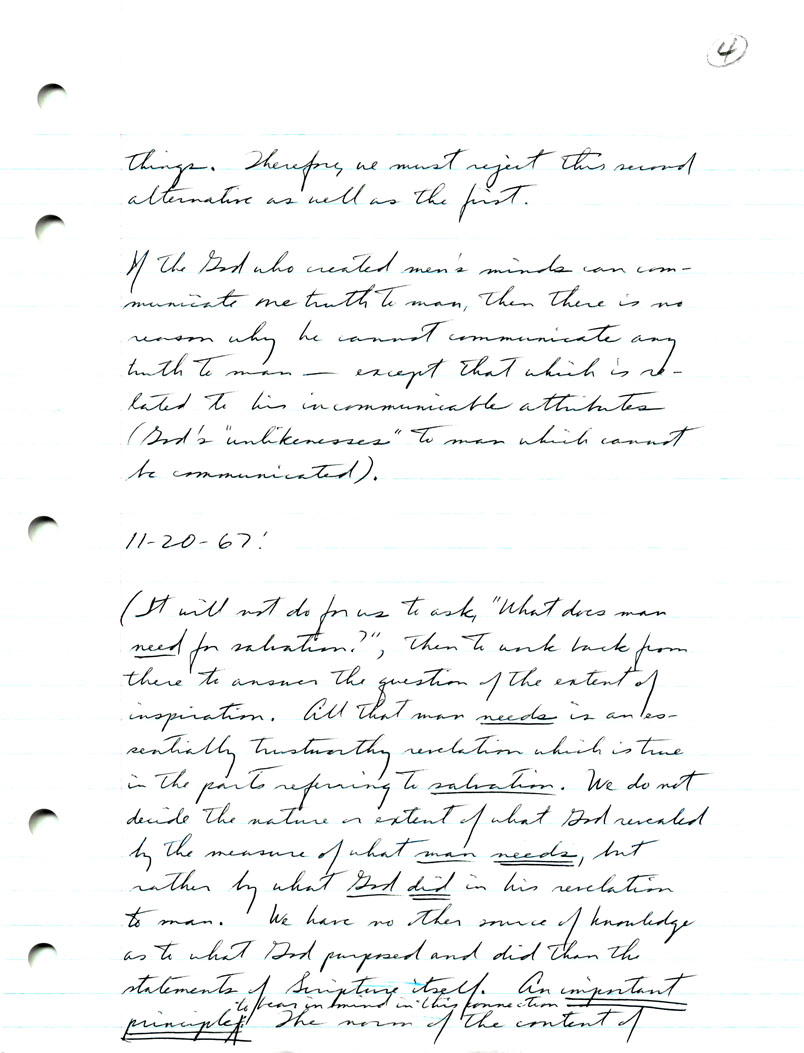 4
things. Therefore, we must reject this second
alternative as well as the first.
If the God who created men's minds can com-
municate one truth to man, then there is no
reason why he cannot communicate any
truth to man — except that which is re-
lated to his incommunicable attributes
(God's "unlikenesses" to man which cannot
be communicated).
11-20-67:
(It will not do for us to ask, "What does man
need for salvation?", then to work back from
there to answer the question of the extent of
inspiration. All that man needs is an es-
sentially trustworthy revelation which is true
in the parts referring to salvation. We do not
decide the nature or extent of what God revealed
by the measure of what man needs, but
rather by what God did in his revelation
to man. We have no other source of knowledge
as to what God purposed and did than the
statements of Scripture itself. An important
to bear in mind in this connection is
principle: The norm of the content of